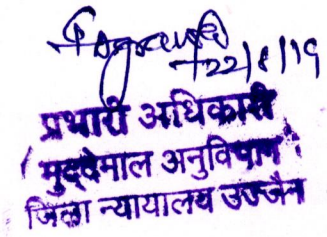 22/8/19
प्रभारी अधिकारी
मुद्देमाल अनुविभाग
जिला न्यायालय उज्जैन